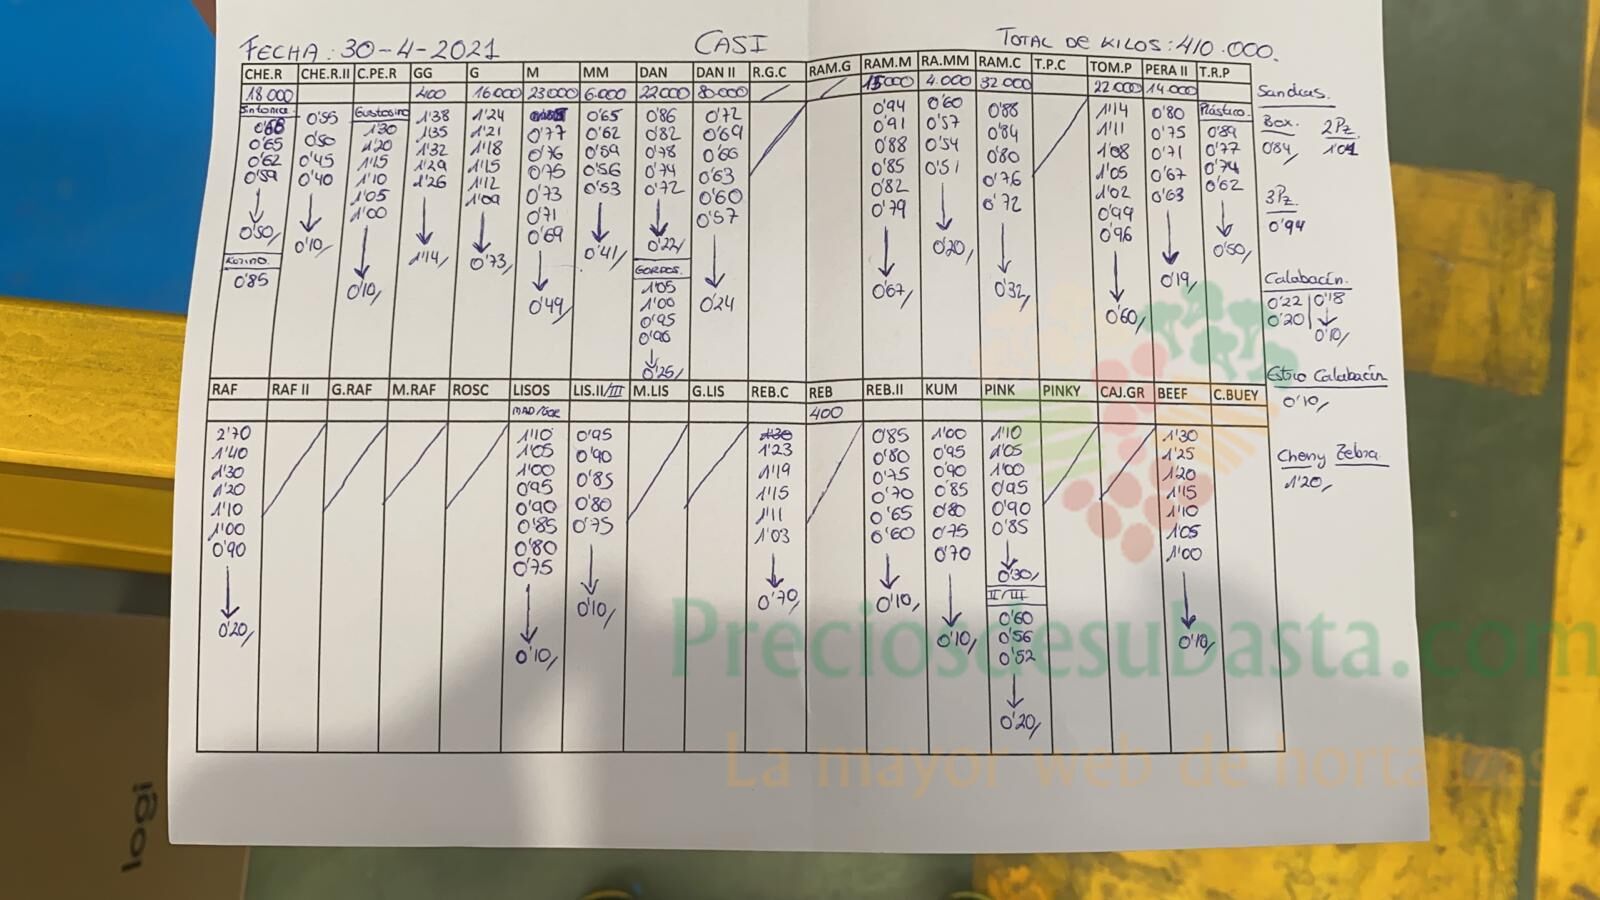 FECHA: 30-4-2021 CASI TOTAL DE KILOS: 410.000.
CHE.R CHE.R.II C.PE.R GG G M MM DAN DAN II R.G.C RAM.G RAM.M RA.MM RAM.C T.P.C TOM.P PERA II T.R.P
18000 400 16000 23000 6.000 22000 80.000 15000 4.000 32000 22000 14.000
Sintonia
0'68
0'65
0'62
0'59
0'50/
0'85
0'55
0'50
0'45
0'40
0'10/
Gustosino
1'30
1'20
1'15
1'10
1'05
1'00
0'10/
1'38
1'35
1'32
1'29
1'26
1'14/
1'24
1'21
1'18
1'15
1'12
1'09
0'73/
0'77
0'76
0'75
0'73
0'71
0'69
0'49/
0'65
0'62
0'59
0'56
0'53
0'41/
0'86
0'82
0'78
0'74
0'72
0'22/
GORDOS.
1'05
1'00
0'95
0'90
0'25/
0'72
0'69
0'66
0'63
0'60
0'57
0'24
0'94
0'91
0'88
0'85
0'82
0'79
0'67/
0'60
0'57
0'54
0'51
0'20/
0'88
0'84
0'80
0'76
0'72
0'32/
1'14
1'11
1'08
1'05
1'02
0'99
0'96
0'60/
0'80
0'75
0'71
0'67
0'63
0'19/
Plástico.
0'89
0'77
0'74
0'62
0'50/
Sandias.
Box. 2Pz.
0'84/ 1'01
3Pz.
0'94
Calabacín.
0'22 0'18
0'20 0'10/
Estrio Calabacín
0'10/
Cherry Zebra.
1'20/
RAF RAF II G.RAF M.RAF ROSC LISOS LIS.II/III M.LIS G.LIS REB.C REB REB.II KUM PINK PINKY CAJ.GR BEEF C.BUEY
MAD/GOR 400
2'70
1'40
1'30
1'20
1'10
1'00
0'90
0'20/
1'10
1'05
1'00
0'95
0'90
0'85
0'80
0'75
0'10/
0'95
0'90
0'85
0'80
0'75
0'10/
1'30
1'23
1'19
1'15
1'11
1'03
0'70/
0'85
0'80
0'75
0'70
0'65
0'60
0'10/
1'00
0'95
0'90
0'85
0'80
0'75
0'70
0'10/
1'10
1'05
1'00
0'95
0'90
0'85
0'30/
II/III
0'60
0'56
0'52
0'20/
1'30
1'25
1'20
1'15
1'10
1'05
1'00
0'10/
Preciosdesubasta.com
La mayor web de hortalizas
logi